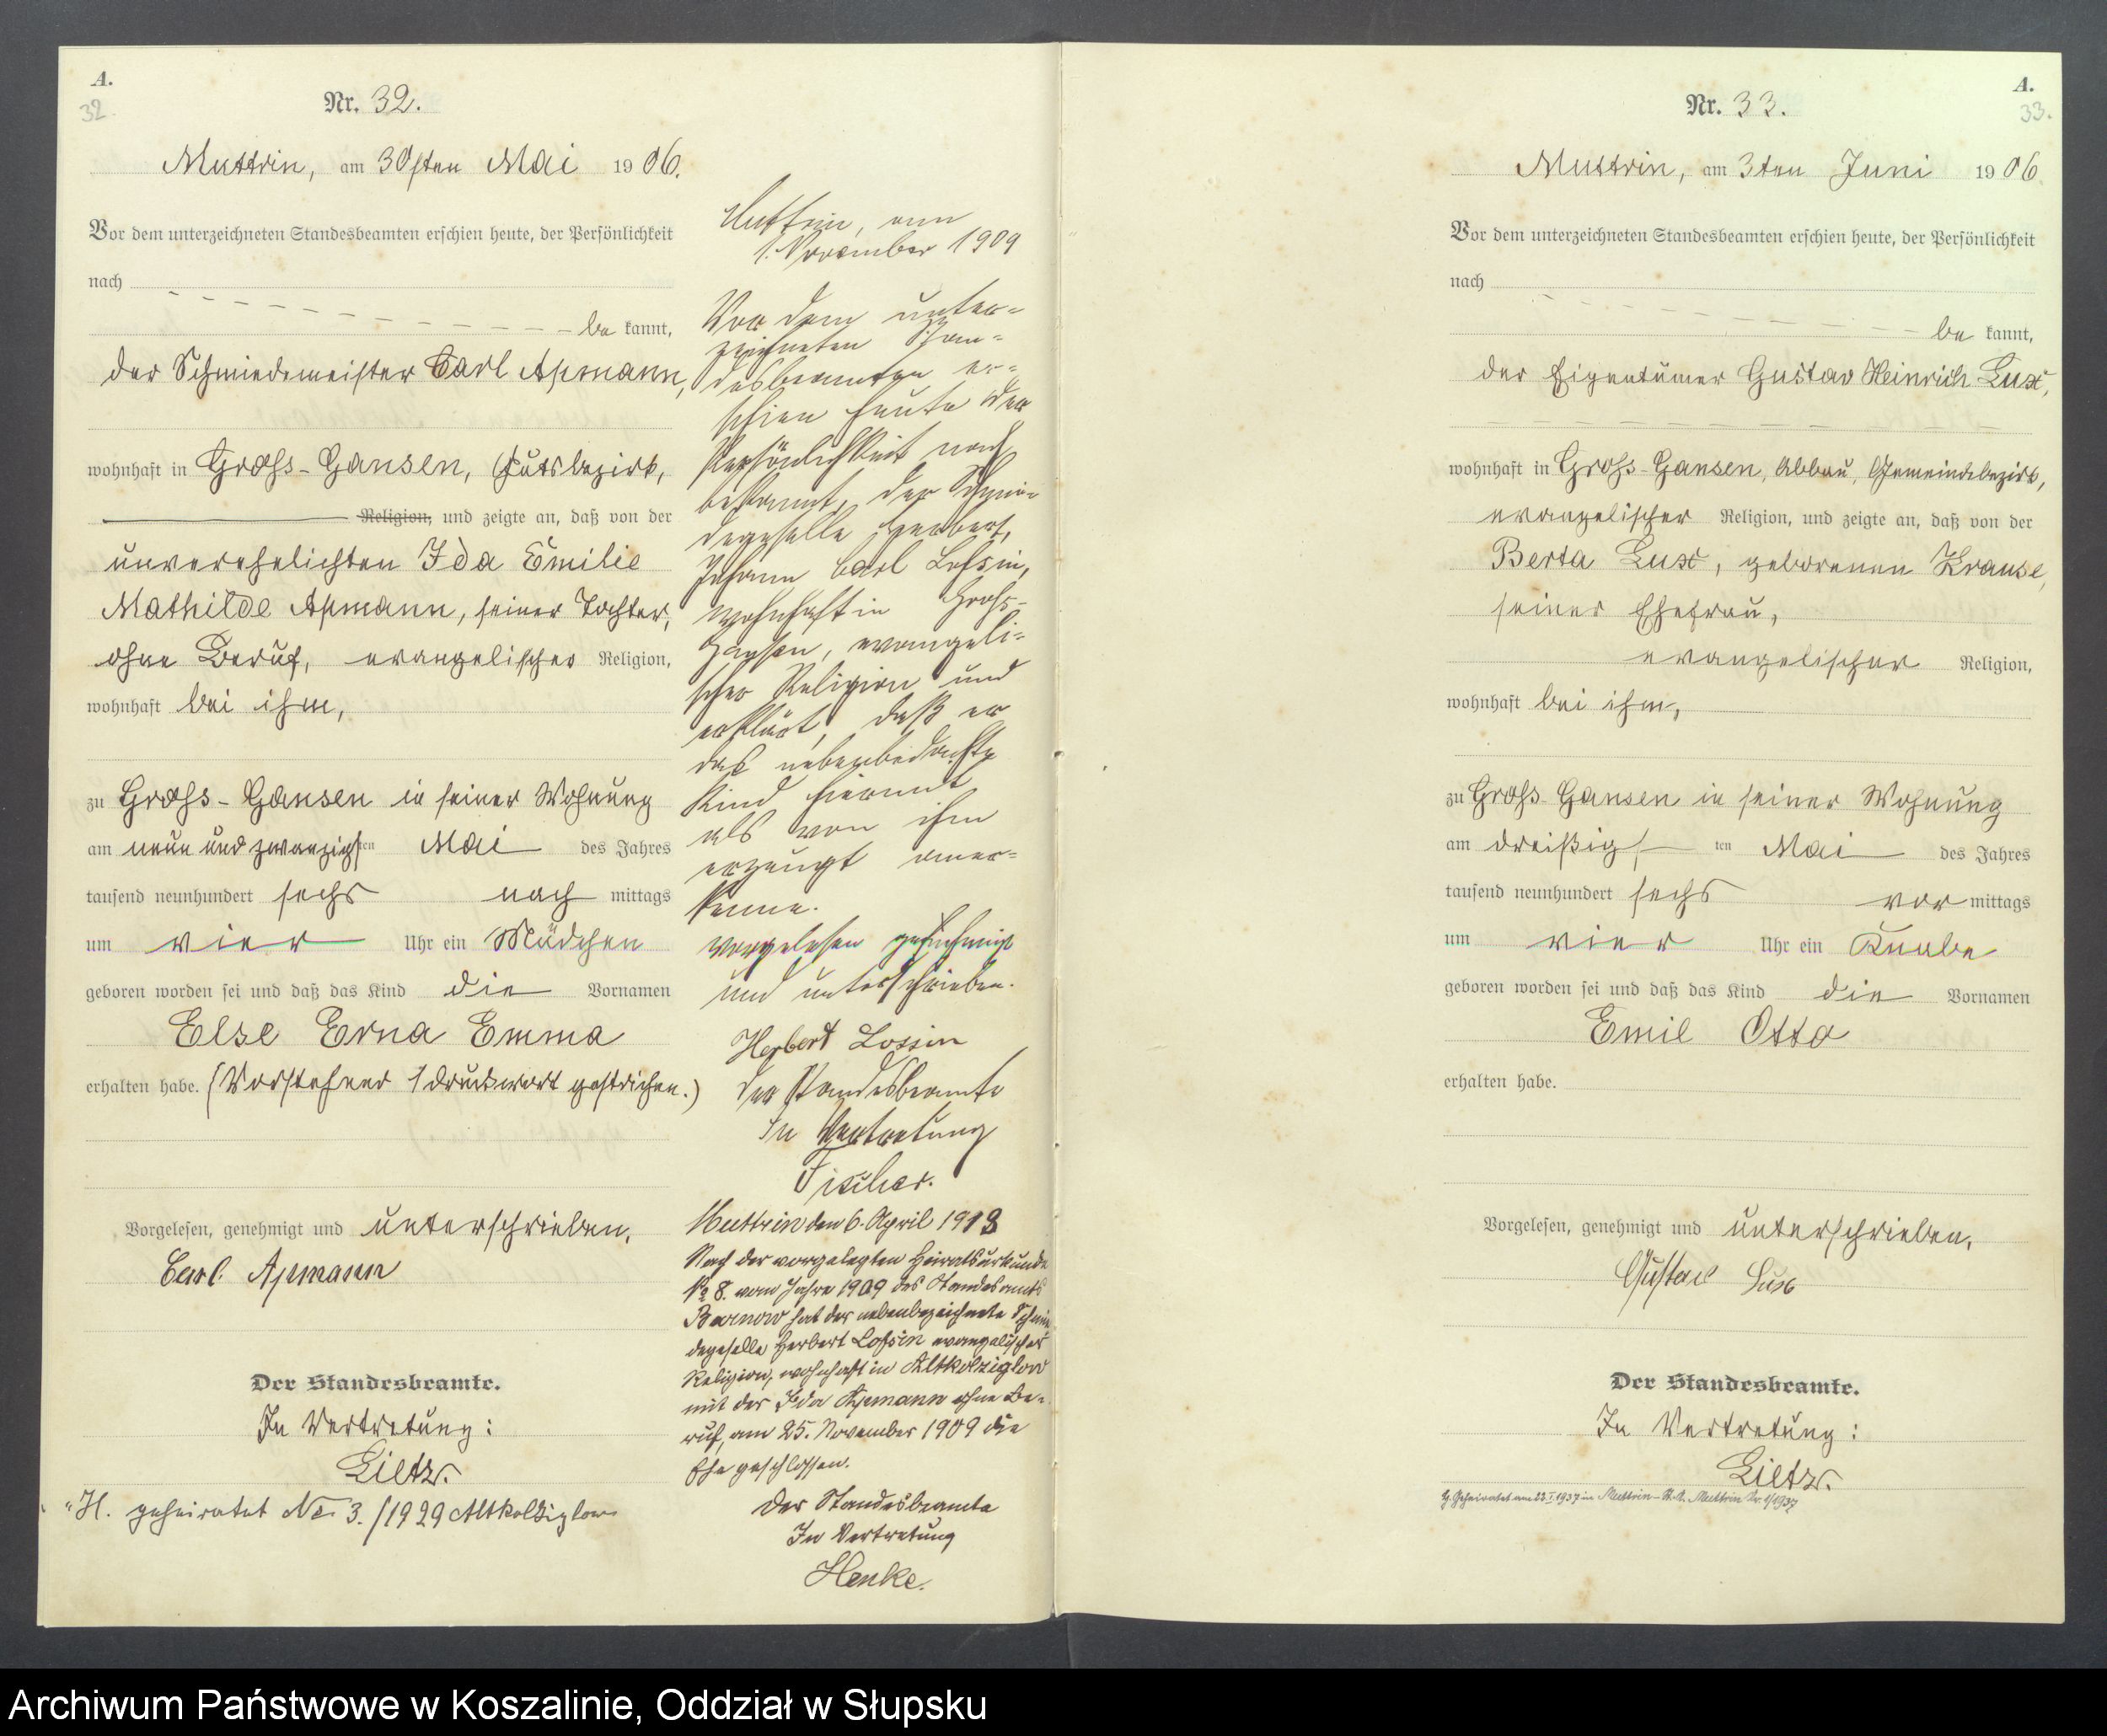 A.
32.
Nr. 32.
Muttrin, am 30sten Mai 1906.
Vor dem unterzeichneten Standesbeamten erschien heute, der Persönlichkeit
nach
be kannt,
der Schmiedemeister Carl Apmann,
wohnhaft in Gross-Gansen, Gutsbezirk,
Religion, und zeigte an, daß von der
unverehelichten Ida Emilie
Mathilde Apmann, seiner Tochter,
ohne Beruf, evangelischer Religion,
wohnhaft bei ihm,
zu Gross-Gansen in seiner Wohnung
am neun und zwanzigsten Mai des Jahres
tausend neunhundert sechs nach mittags
um vier Uhr ein Mädchen
geboren worden sei und daß das Kind die Vornamen
Else Erna Emma
erhalten habe. (Vorstehend 1 Druckwort gestrichen.)
Vorgelesen, genehmigt und unterschrieben.
Carl Apmann
Der Standesbeamte.
In Vertretung:
Lietz.
H. geheiratet No 3./1929 Altkolziglow
Muttrin, am
1. November 1909
Vor dem unter-
zeichneten Stan-
desbeamten er-
schien heute der
Persönlichkeit nach
bekannt, der Schmie-
degeselle Herbert,
Johann Carl Lossin,
wohnhaft in Gross-
Gansen, evangeli-
scher Religion und
erklärt, daß er
das nebenbedachte
Kind hiermit
als von ihm
erzeugt aner-
kenne.
Vorgelesen genehmigt
und unterschrieben.
Herbert Lossin
Der Standesbeamte
In Vertretung
Fischer.
Muttrin den 6. April 1913
Nach der vorgelegten Heiratsurkunde
No 8. vom Jahre 1909 des Standesamts
Barnow hat der nebenbezeichnete Schmie
degeselle Herbert Lossin evangelischer
Religion, wohnhaft in Altkolziglow
mit der Ida Apmann ohne Be-
ruf, am 25. November 1909 die
Ehe geschlossen.
Der Standesbeamte
In Vertretung
Henke.
A.
33.
Nr. 33.
Muttrin, am 3ten Juni 1906
Vor dem unterzeichneten Standesbeamten erschien heute, der Persönlichkeit
nach
be kannt,
der Eigentümer Gustav Heinrich Lux,
wohnhaft in Gross-Gansen, Abbau, Gemeindebezirk,
evangelischer Religion, und zeigte an, daß von der
Berta Lux, geborenen Krause,
seiner Ehefrau,
evangelischer Religion,
wohnhaft bei ihm,
zu Gross-Gansen in seiner Wohnung
am dreißigsten Mai des Jahres
tausend neunhundert sechs vor mittags
um vier Uhr ein Knabe
geboren worden sei und daß das Kind die Vornamen
Emil Otto
erhalten habe.
Vorgelesen, genehmigt und unterschrieben.
Gustav Lux
Der Standesbeamte.
In Vertretung:
Lietz.
G. Geheiratet am 22.I.1937 in Muttrin - St.A. Muttrin Nr. 1/1937
Archiwum Państwowe w Koszalinie, Oddział w Słupsku